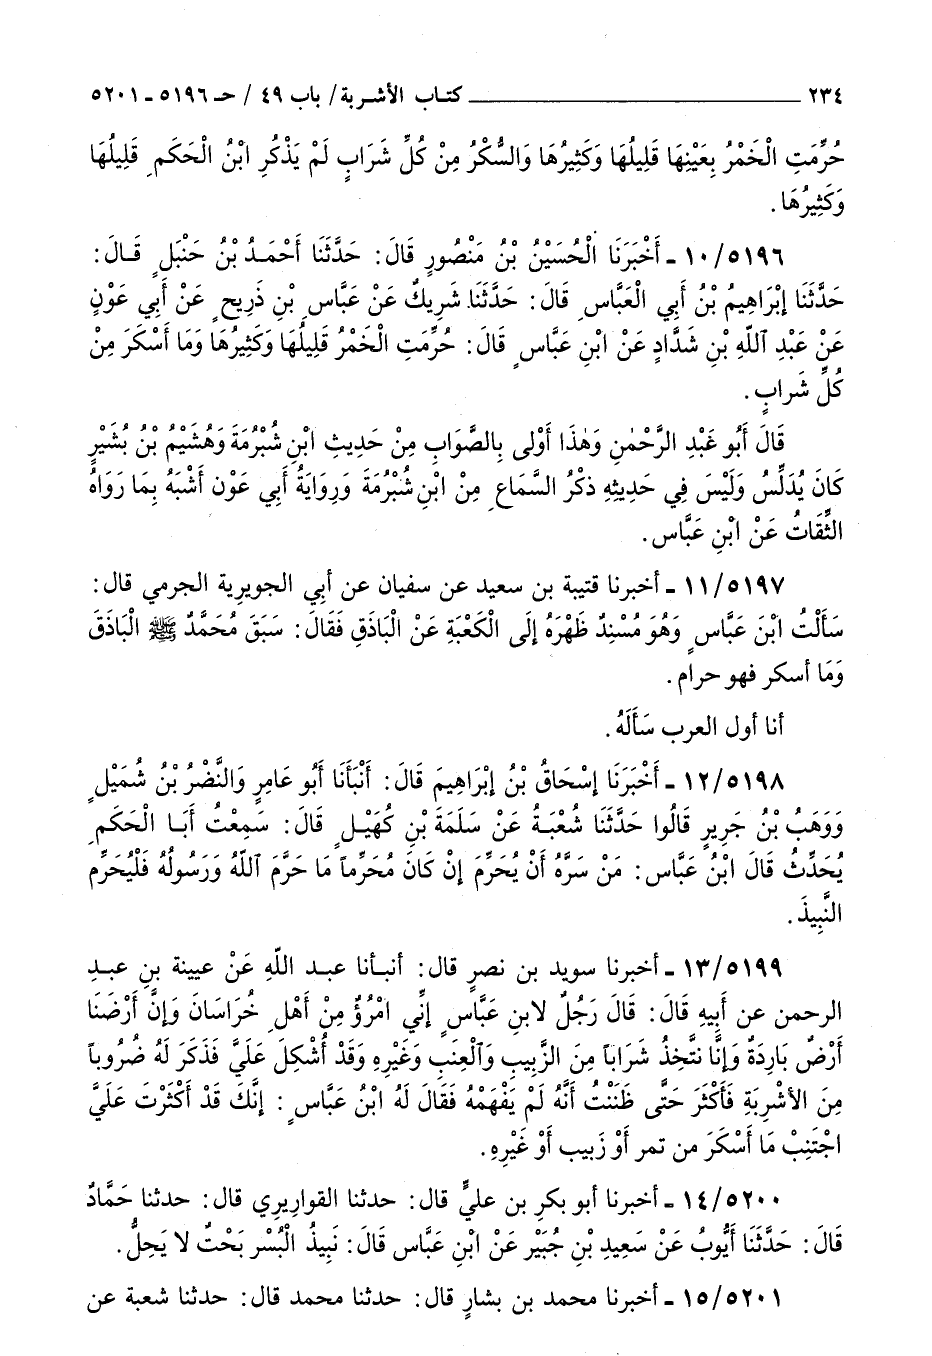 ٢٣٤ ــــــــــــــــــــــــــــــــــــــــ كتاب الأشربة/ باب ٤٩ / حـ ٥١٩٦ ـ ٥٢٠١
حُرِّمَتِ الْخَمْرُ بِعَيْنِهَا قَلِيلُهَا وَكَثِيرُهَا وَالسُّكْرُ مِنْ كُلِّ شَرَابٍ لَمْ يَذْكُرِ ابْنُ الْحَكَمِ قَلِيلُهَا
وَكَثِيرُهَا.
١٠/٥١٩٦ ـ أَخْبَرَنَا الْحُسَيْنُ بْنُ مَنْصُورٍ قَالَ: حَدَّثَنَا أَحْمَدُ بْنُ حَنْبَلٍ قَالَ:
حَدَّثَنَا إِبْرَاهِيمُ بْنُ أَبِي الْعَبَّاسِ قَالَ: حَدَّثَنَا شَرِيكٌ عَنْ عَبَّاسِ بْنِ ذَرِيحٍ عَنْ أَبِي عَوْنٍ
عَنْ عَبْدِ ٱللّٰهِ بْنِ شَدَّادٍ عَنْ ابْنِ عَبَّاسٍ قَالَ: حُرِّمَتِ الْخَمْرُ قَلِيلُهَا وَكَثِيرُهَا وَمَا أَسْكَرَ مِنْ
كُلِّ شَرَابٍ.
قَالَ أَبُو عَبْدِ الرَّحْمٰنِ وَهٰذَا أَوْلى بِالصَّوَابِ مِنْ حَدِيثِ ابْنِ شُبْرُمَةَ وَهُشَيْمُ بْنُ بُشَيْرٍ
كَانَ يُدَلِّسُ وَلَيْسَ فِي حَدِيثِهِ ذِكْرُ السَّمَاعِ مِنْ ابْنِ شُبْرُمَةَ وَرِوَايَةُ أَبِي عَوْن أَشْبَهُ بِمَا رَوَاهُ
الثِّقَاتُ عَنْ ابْنِ عَبَّاس.
١١/٥١٩٧ ـ أخبرنا قتيبة بن سعيد عن سفيان عن أبي الجويرية الجرمي قال:
سَأَلْتُ ابْنَ عَبَّاسٍ وَهُوَ مُسْنِدٌ ظَهْرَهُ إِلَى الْكَعْبَةِ عَنْ الْبَاذَقِ فَقَالَ: سَبَقَ مُحَمَّدٌ ﷺ الْبَاذَقَ
وَمَا أسكر فهو حرام.
أنا أول العرب سَأَلَهُ.
١٢/٥١٩٨ ـ أَخْبَرَنَا إِسْحَاقُ بْنُ إِبْرَاهِيمَ قَالَ: أَنْبَأَنَا أَبُو عَامِرٍ وَالنَّضْرُ بْنُ شُمَيْلٍ
وَوَهَبُ بْنُ جَرِيرٍ قَالُوا حَدَّثَنَا شُعْبَةُ عَنْ سَلَمَةَ بْنِ كُهَيْلٍ قَالَ: سَمِعْتُ أَبَا الْحَكَمِ
يُحَدِّثُ قَالَ ابْنُ عَبَّاس: مَنْ سَرَّهُ أَنْ يُحَرِّمَ إِنْ كَانَ مُحَرِّماً مَا حَرَّمَ ٱللّٰهُ وَرَسُولُهُ فَلْيُحَرِّم
النَّبِيذَ.
١٣/٥١٩٩ ـ أخبرنا سويد بن نصرٍ قال: أنبأنا عبد اللّهِ عَنْ عيينة بنِ عبدِ
الرحمن عن أَبِيهِ قَالَ: قَالَ رَجُلٌ لابنِ عَبَّاسٍ إِنِّي امْرُؤٌ مِنْ أَهْلِ خُرَاسَانَ وَإِنَّ أَرْضَنَا
أَرْضٌ بَارِدَةٌ وَإِنَّا نَتَّخِذُ شَرَاباً مِنَ الزَّبِيبِ وَٱلْعِنَبِ وَغَيْرِهِ وَقَدْ أُشْكِلَ عَلَيَّ فَذَكَرَ لَهُ ضُرُوباً
مِنَ الأشْرِبَةِ فَأَكْثَرَ حَتَّى ظَنَنْتُ أَنَّهُ لَمْ يَفْهَمْهُ فَقَالَ لَهُ ابْنُ عَبَّاسٍ : إِنَّكَ قَدْ أَكْثَرْتَ عَلَيَّ
اجْتَنِبْ مَا أَسْكَرَ من تمر أَوْ زَبِيب أَوْ غَيْرِهِ.
١٤/٥٢٠٠ ـ أخبرنا أبو بكرِ بن عليٍّ قال: حدثنا القواريري قال: حدثنا حَمَّادٌ
قَالَ: حَدَّثَنَا أَيُّوبُ عَنْ سَعِيدِ بْنِ جُبَيْر عَنْ ابْنِ عَبَّاس قَالَ: نَبِيذُ الْبُسْر بَحْتٌ لا يَحِلُّ.
١٥/٥٢٠١ ـ أخبرنا محمد بن بشارٍ قال: حدثنا محمد قال: حدثنا شعبة عن